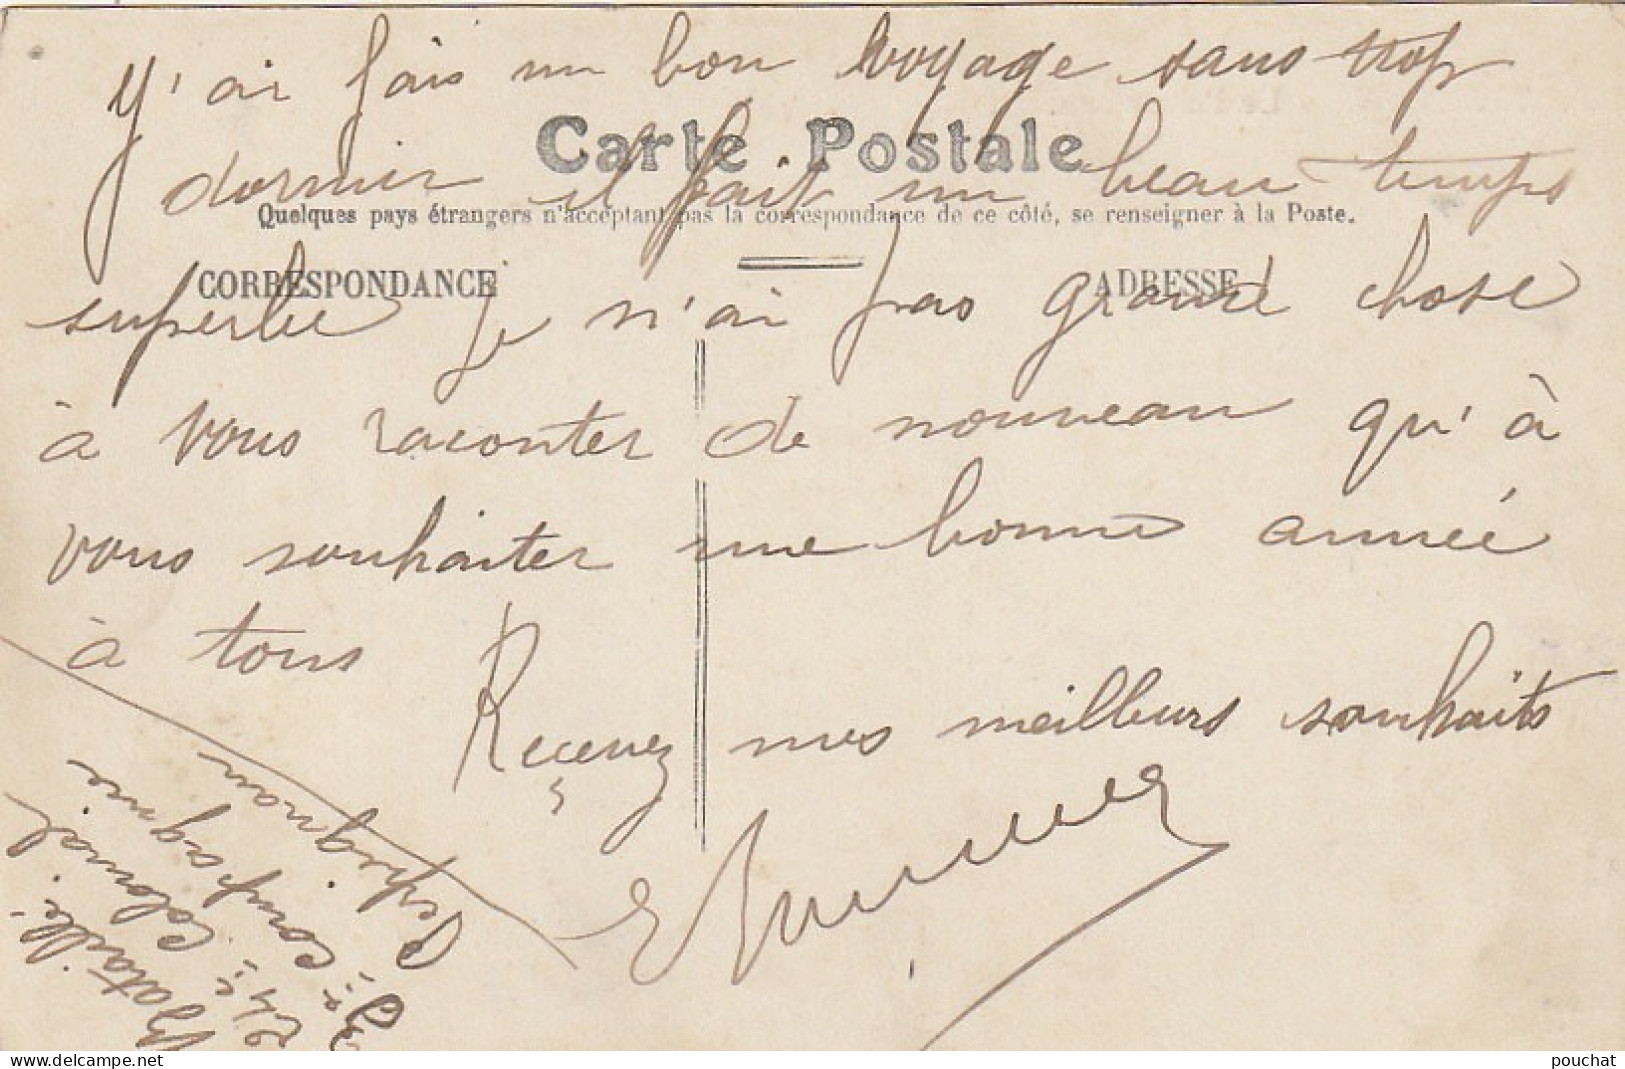 Y'ai fais un bon voyage sans trop
Carte Postale
dormir il fait un beau temps
Quelques pays étrangers n'acceptant pas la correspondance de ce côté, se renseigner à la Poste.
CORRESPONDANCE
ADRESSE
superbe je n'ai pas grande chose
à vous raconter de nouveau qu'à
vous souhaiter une bonne année
à tous
Recevez mes meilleurs souhaits
Bataille
24e Colonial
3e Compagnie
Perpignan
www.delcampe.net
pouchat